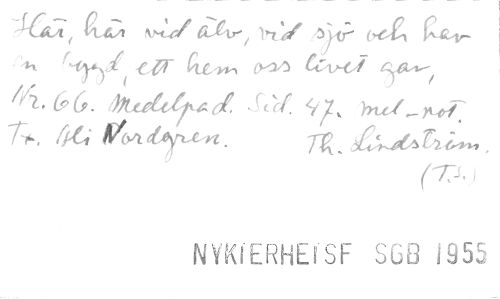 Här, här vid älv, vid sjö och hav
en bygd, ett hem oss livet gav,
Nr. 66. Medelpad. Sid. 47. mel-not.
Tx. Uli Nordgren. Th. Lindström.
(T.S.)
NYKTERHETSF SGB 1955